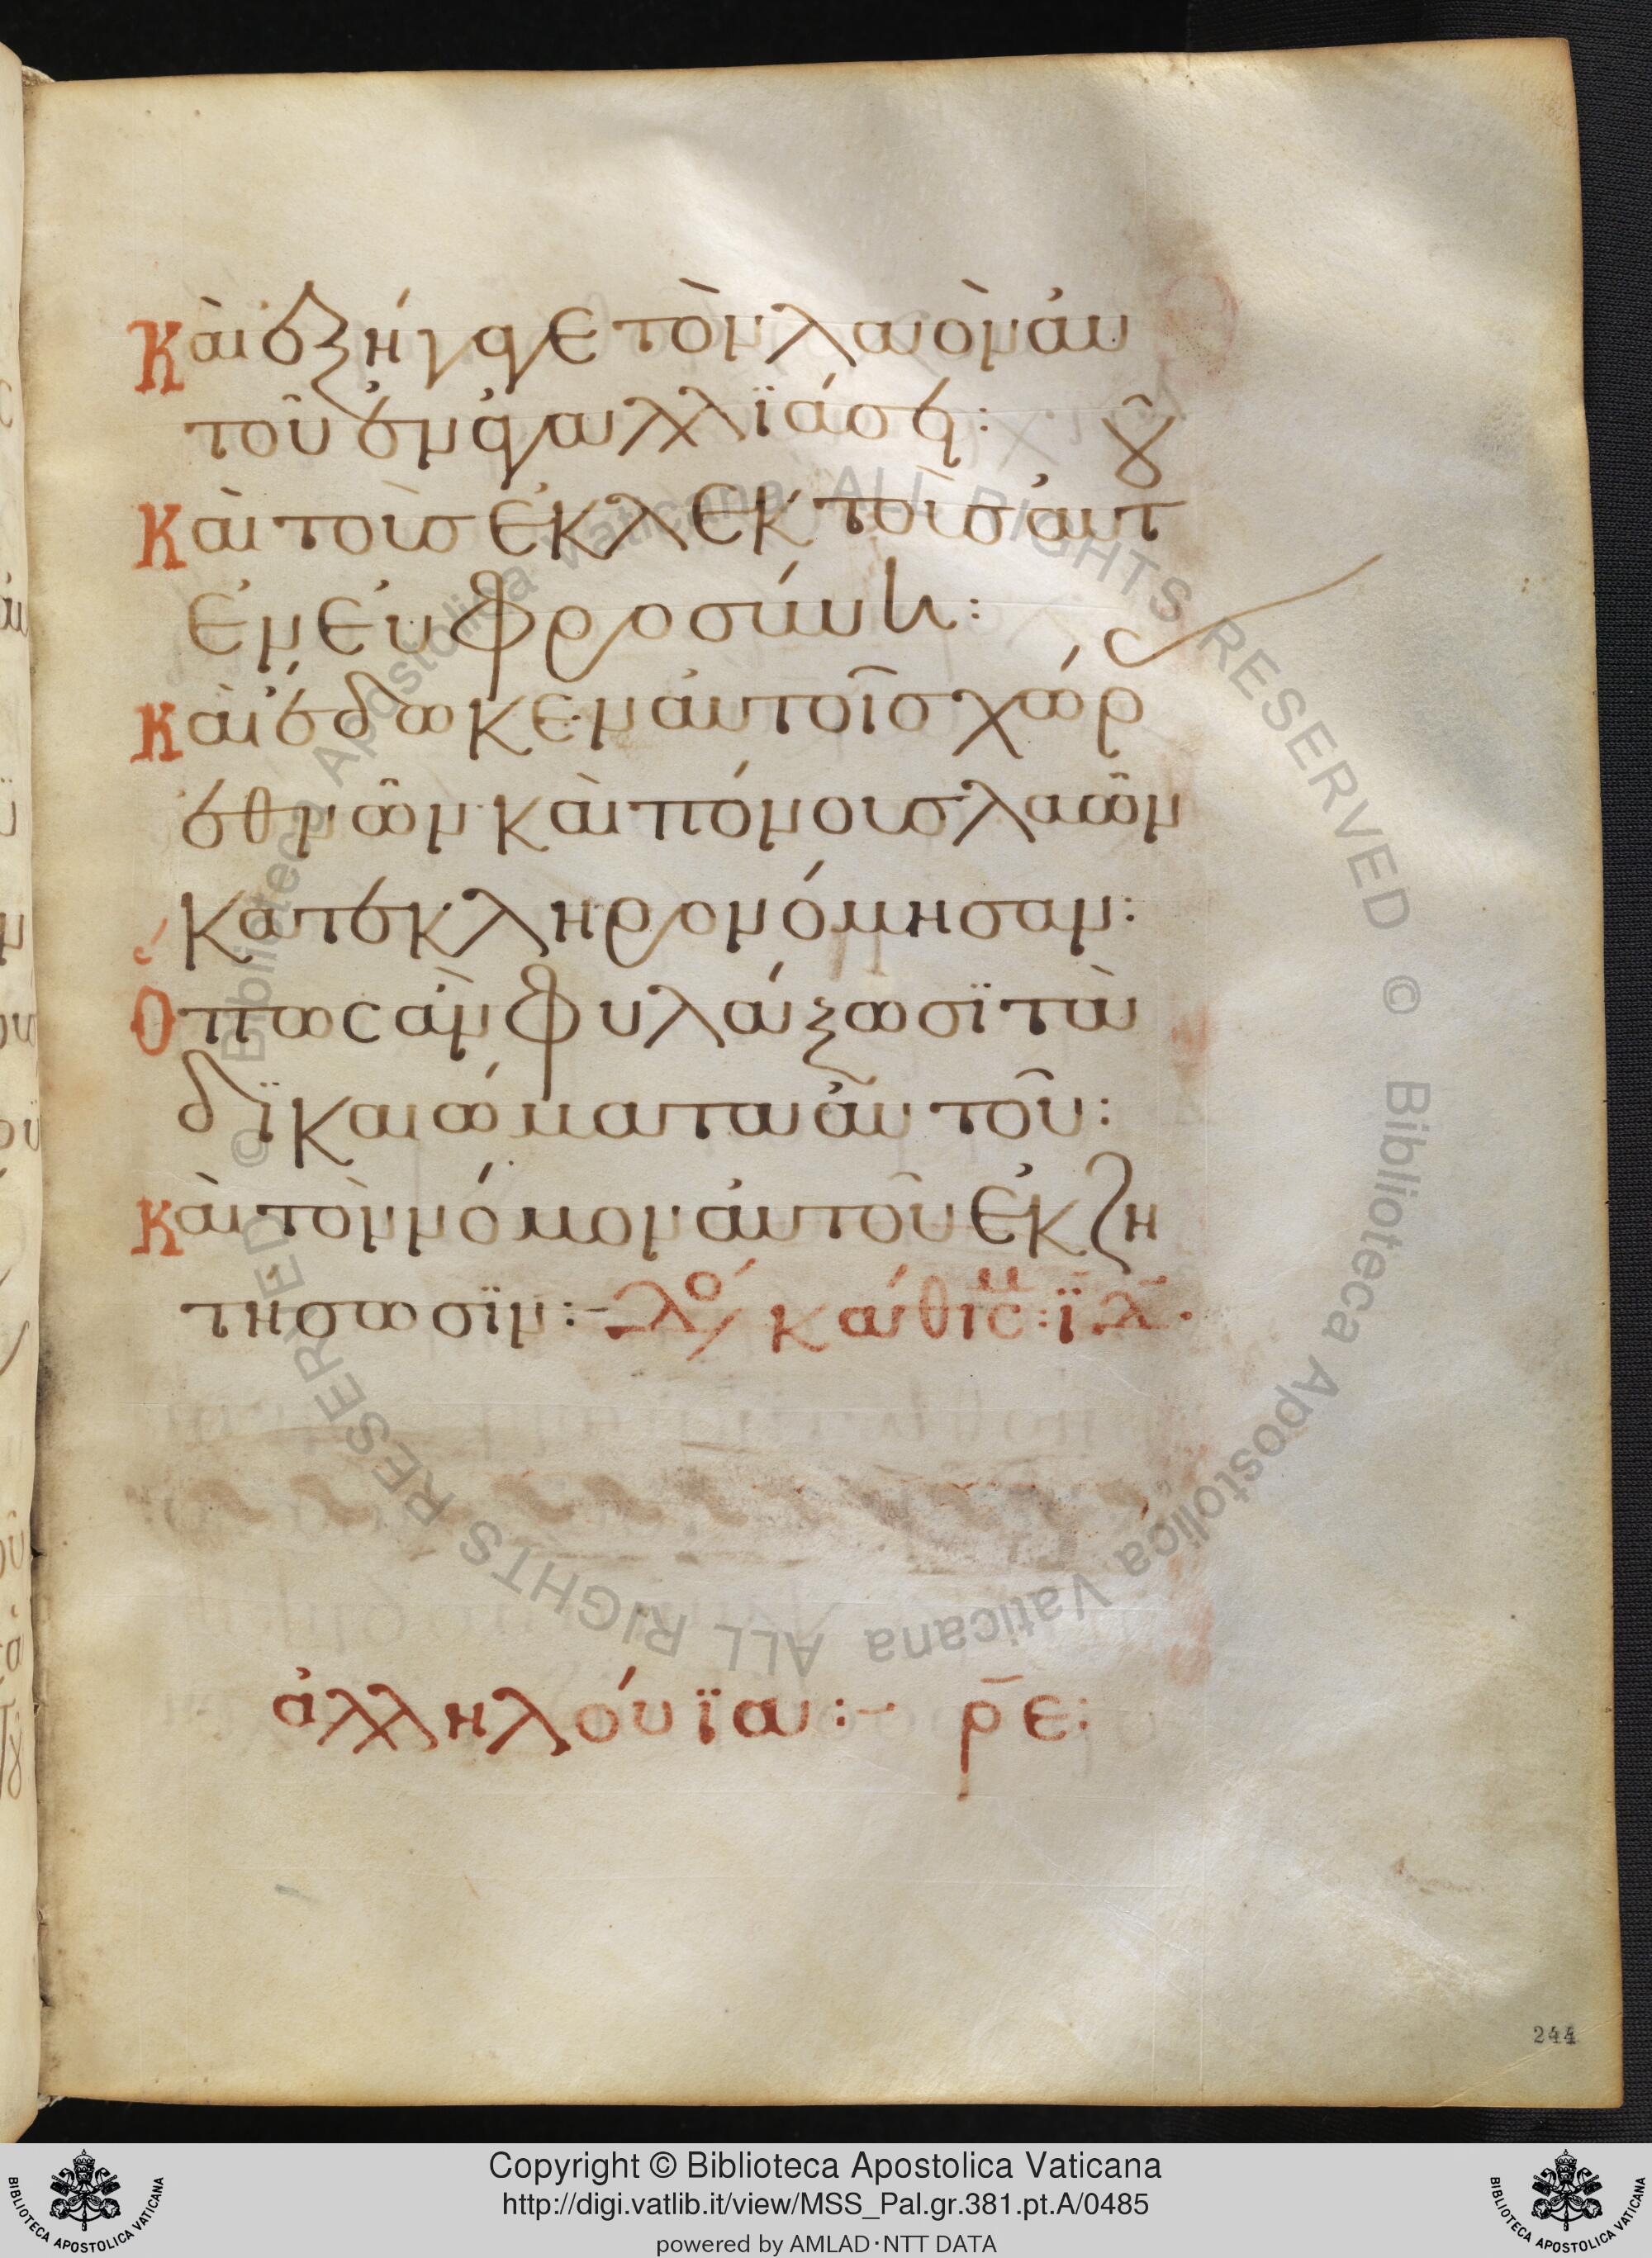 Καὶ ἐξήγαγε τὸν λαὸν αὐ
τοῦ ἐν ἀγαλλϊάσει:
Καὶ τοὺσ ἐκλεκτοὺσ ἀυτ
ȣ̃
ἐν ἐυφροσύνη:
Καὶ ἔδωκεν ἀυτοῖσ χώρ
ἐθνῶν καὶ πόνουσ λαῶν
κατεκληρονόμησαν:
Ὅπωσ ἀν φυλάξωσϊ τὰ
δϊκαιώματα ἀυτοῦ:
Καὶ τὸν νόμον ἀυτοῦ ἐκζη
τήσωσϊν:-
κάθισ: ϊ λ
ἀλληλούϊα:- ρ̅ε:
244
© Biblioteca Apostolica Vaticana ALL RIGHTS RESERVED © Biblioteca Apostolica Vaticana ALL RIGHTS RESERVED
Copyright © Biblioteca Apostolica Vaticana
http://digi.vatlib.it/view/MSS_Pal.gr.381.pt.A/0485
powered by AMLAD·NTT DATA
BIBLIOTECA APOSTOLICA VATICANA
BIBLIOTECA APOSTOLICA VATICANA